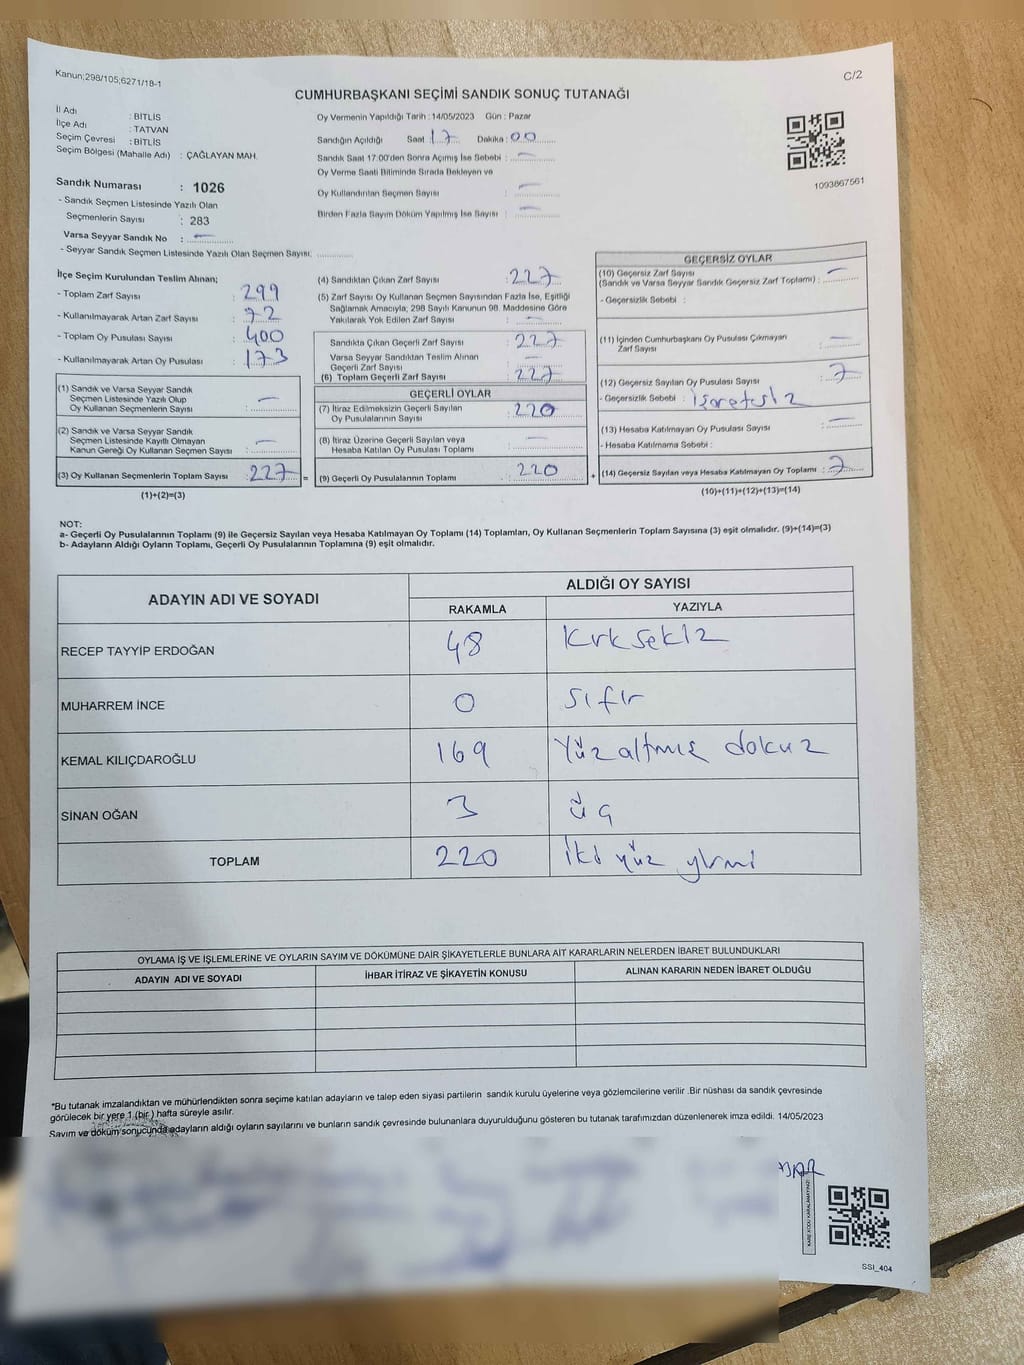 Kanun;298/105;6271/18-1
C/2
CUMHURBAŞKANI SEÇİMİ SANDIK SONUÇ TUTANAĞI
İl Adı : BİTLİS
İlçe Adı : TATVAN
Seçim Çevresi : BİTLİS
Seçim Bölgesi (Mahalle Adı) : ÇAĞLAYAN MAH.
Sandık Numarası : 1026
- Sandık Seçmen Listesinde Yazılı Olan
Seçmenlerin Sayısı : 283
Varsa Seyyar Sandık No : –
- Seyyar Sandık Seçmen Listesinde Yazılı Olan Seçmen Sayısı: ............
Oy Vermenin Yapıldığı Tarih : 14/05/2023 Gün : Pazar
Sandığın Açıldığı Saat 17 Dakika : 00
Sandık Saat 17:00'den Sonra Açımış İse Sebebi : –
Oy Verme Saati Bitiminde Sırada Bekleyen ve
Oy Kullandırılan Seçmen Sayısı : –
Birden Fazla Sayım Döküm Yapılmış İse Sayısı : –
1093867561
İlçe Seçim Kurulundan Teslim Alınan;
- Toplam Zarf Sayısı : 299
- Kullanılmayarak Artan Zarf Sayısı : 72
- Toplam Oy Pusulası Sayısı : 400
- Kullanılmayarak Artan Oy Pusulası : 173
(1) Sandık ve Varsa Seyyar Sandık
Seçmen Listesinde Yazılı Olup
Oy Kullanan Seçmenlerin Sayısı : –
(2) Sandık ve Varsa Seyyar Sandık
Seçmen Listesinde Kayıtlı Olmayan
Kanun Gereği Oy Kullanan Seçmen Sayısı : –
(3) Oy Kullanan Seçmenlerin Toplam Sayısı : 227 =
(1)+(2)=(3)
(4) Sandıktan Çıkan Zarf Sayısı : 227
(5) Zarf Sayısı Oy Kullanan Seçmen Sayısından Fazla İse, Eşitliği
Sağlamak Amacıyla; 298 Sayılı Kanunun 98. Maddesine Göre
Yakılarak Yok Edilen Zarf Sayısı : –
Sandıkta Çıkan Geçerli Zarf Sayısı : 227
Varsa Seyyar Sandıktan Teslim Alınan
Geçerli Zarf Sayısı : –
(6) Toplam Geçerli Zarf Sayısı : 227
GEÇERLİ OYLAR
(7) İtiraz Edilmeksizin Geçerli Sayılan
Oy Pusulalarının Sayısı : 220
(8) İtiraz Üzerine Geçerli Sayılan veya
Hesaba Katılan Oy Pusulası Toplamı : –
(9) Geçerli Oy Pusulalarının Toplamı : 220 +
GEÇERSİZ OYLAR
(10) Geçersiz Zarf Sayısı
(Sandık ve Varsa Seyyar Sandık Geçersiz Zarf Toplamı) : –
- Geçersizlik Sebebi :
(11) İçinden Cumhurbaşkanı Oy Pusulası Çıkmayan
Zarf Sayısı : –
(12) Geçersiz Sayılan Oy Pusulası Sayısı : 7
- Geçersizlik Sebebi : işaretsiz
(13) Hesaba Katılmayan Oy Pusulası Sayısı : –
- Hesaba Katılmama Sebebi :
(14) Geçersiz Sayılan veya Hesaba Katılmayan Oy Toplamı : 7
(10)+(11)+(12)+(13)=(14)
NOT:
a- Geçerli Oy Pusulalarının Toplamı (9) ile Geçersiz Sayılan veya Hesaba Katılmayan Oy Toplamı (14) Toplamları, Oy Kullanan Seçmenlerin Toplam Sayısına (3) eşit olmalıdır. (9)+(14)=(3)
b- Adayların Aldığı Oyların Toplamı, Geçerli Oy Pusulalarının Toplamına (9) eşit olmalıdır.
ADAYIN ADI VE SOYADI
ALDIĞI OY SAYISI
RAKAMLA YAZIYLA
RECEP TAYYİP ERDOĞAN 48 Kırksekiz
MUHARREM İNCE 0 sıfır
KEMAL KILIÇDAROĞLU 169 Yüz altmış dokuz
SİNAN OĞAN 3 üç
TOPLAM 220 İki yüz yirmi
OYLAMA İŞ VE İŞLEMLERİNE VE OYLARIN SAYIM VE DÖKÜMÜNE DAİR ŞİKAYETLERLE BUNLARA AİT KARARLARIN NELERDEN İBARET BULUNDUKLARI
ADAYIN ADI VE SOYADI İHBAR İTİRAZ VE ŞİKAYETİN KONUSU ALINAN KARARIN NEDEN İBARET OLDUĞU
*Bu tutanak imzalandıktan ve mühürlendikten sonra seçime katılan adayların ve talep eden siyasi partilerin sandık kurulu üyelerine veya gözlemcilerine verilir .Bir nüshası da sandık çevresinde
görülecek bir yere 1 (bir ) hafta süreyle asılır.
Sayım ve döküm sonucunda adayların aldığı oyların sayılarını ve bunların sandık çevresinde bulunanlara duyurulduğunu gösteren bu tutanak tarafımızdan düzenlenerek imza edildi. 14/05/2023
KARE KODU KARALAMAYINIZ!
SSI_404